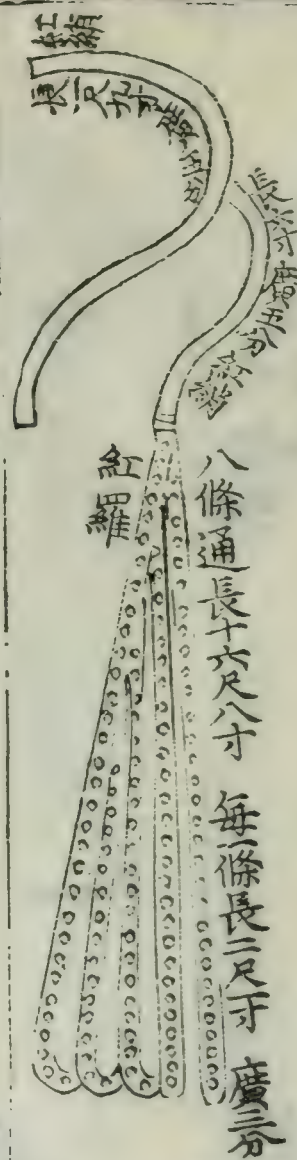 紅絹
長一尺九寸廣五分
長六寸廣五分紅絹
八條通長十六尺八寸 每一條長二尺一寸 廣三分
紅羅